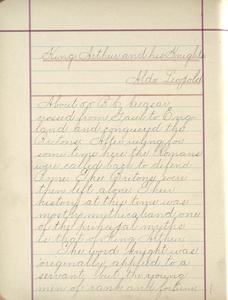 King Arthur and his Knights
Aldo Leopold
About 55 B.C. Caesar
from Gaul to Eng
land and conquered the
Britons. After ruling for
some time here the Romans
were called back to defend
Rome. The Britons were
then left alone. Their
history at this time was
mostly mythical and one
of the principal myths
is that of King Arthur.
The word knight was
originally applied to a
servant, but the young
men of rank and fortune